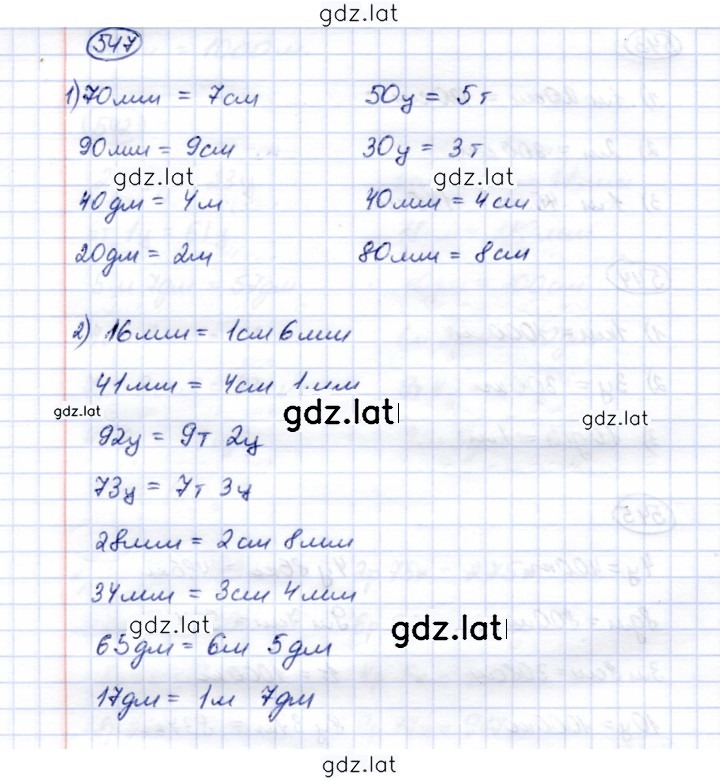 gdz.lat
547
1) 70мм = 7см 50ц = 5т
90мм = 9см 30ц = 3т
gdz.lat gdz.lat
40дм = 4м 40мм = 4см
20дм = 2м 80мм = 8см
2) 16мм = 1см 6мм
41мм = 4см 1мм
gdz.lat gdz.lat gdz.lat
92ц = 9т 2ц
73ц = 7т 3ц
28мм = 2см 8мм
34мм = 3см 4мм
gdz.lat gdz.lat
65дм = 6м 5дм
17дм = 1м 7дм
gdz.lat